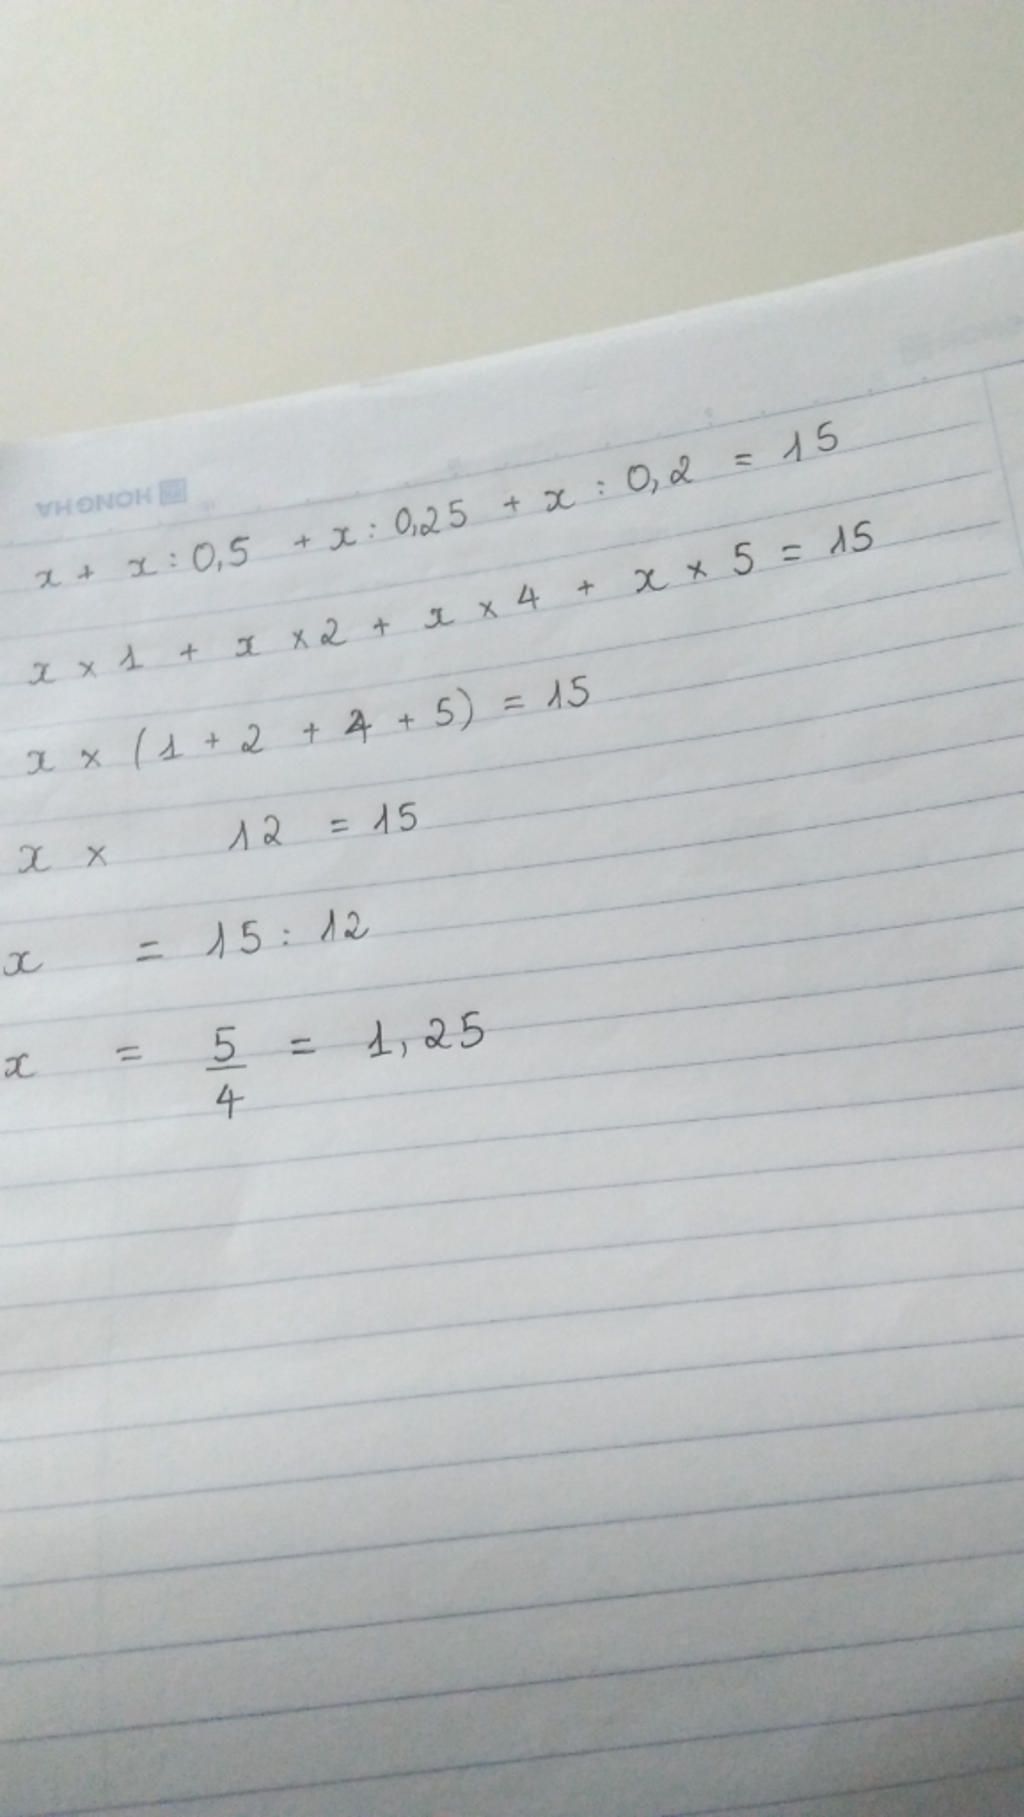 HONG HA
x + x : 0,5 + x : 0,25 + x : 0,2 = 15
x × 1 + x × 2 + x × 4 + x × 5 = 15
x × (1 + 2 + 4 + 5) = 15
x × 12 = 15
x = 15 : 12
x = 5/4 = 1,25